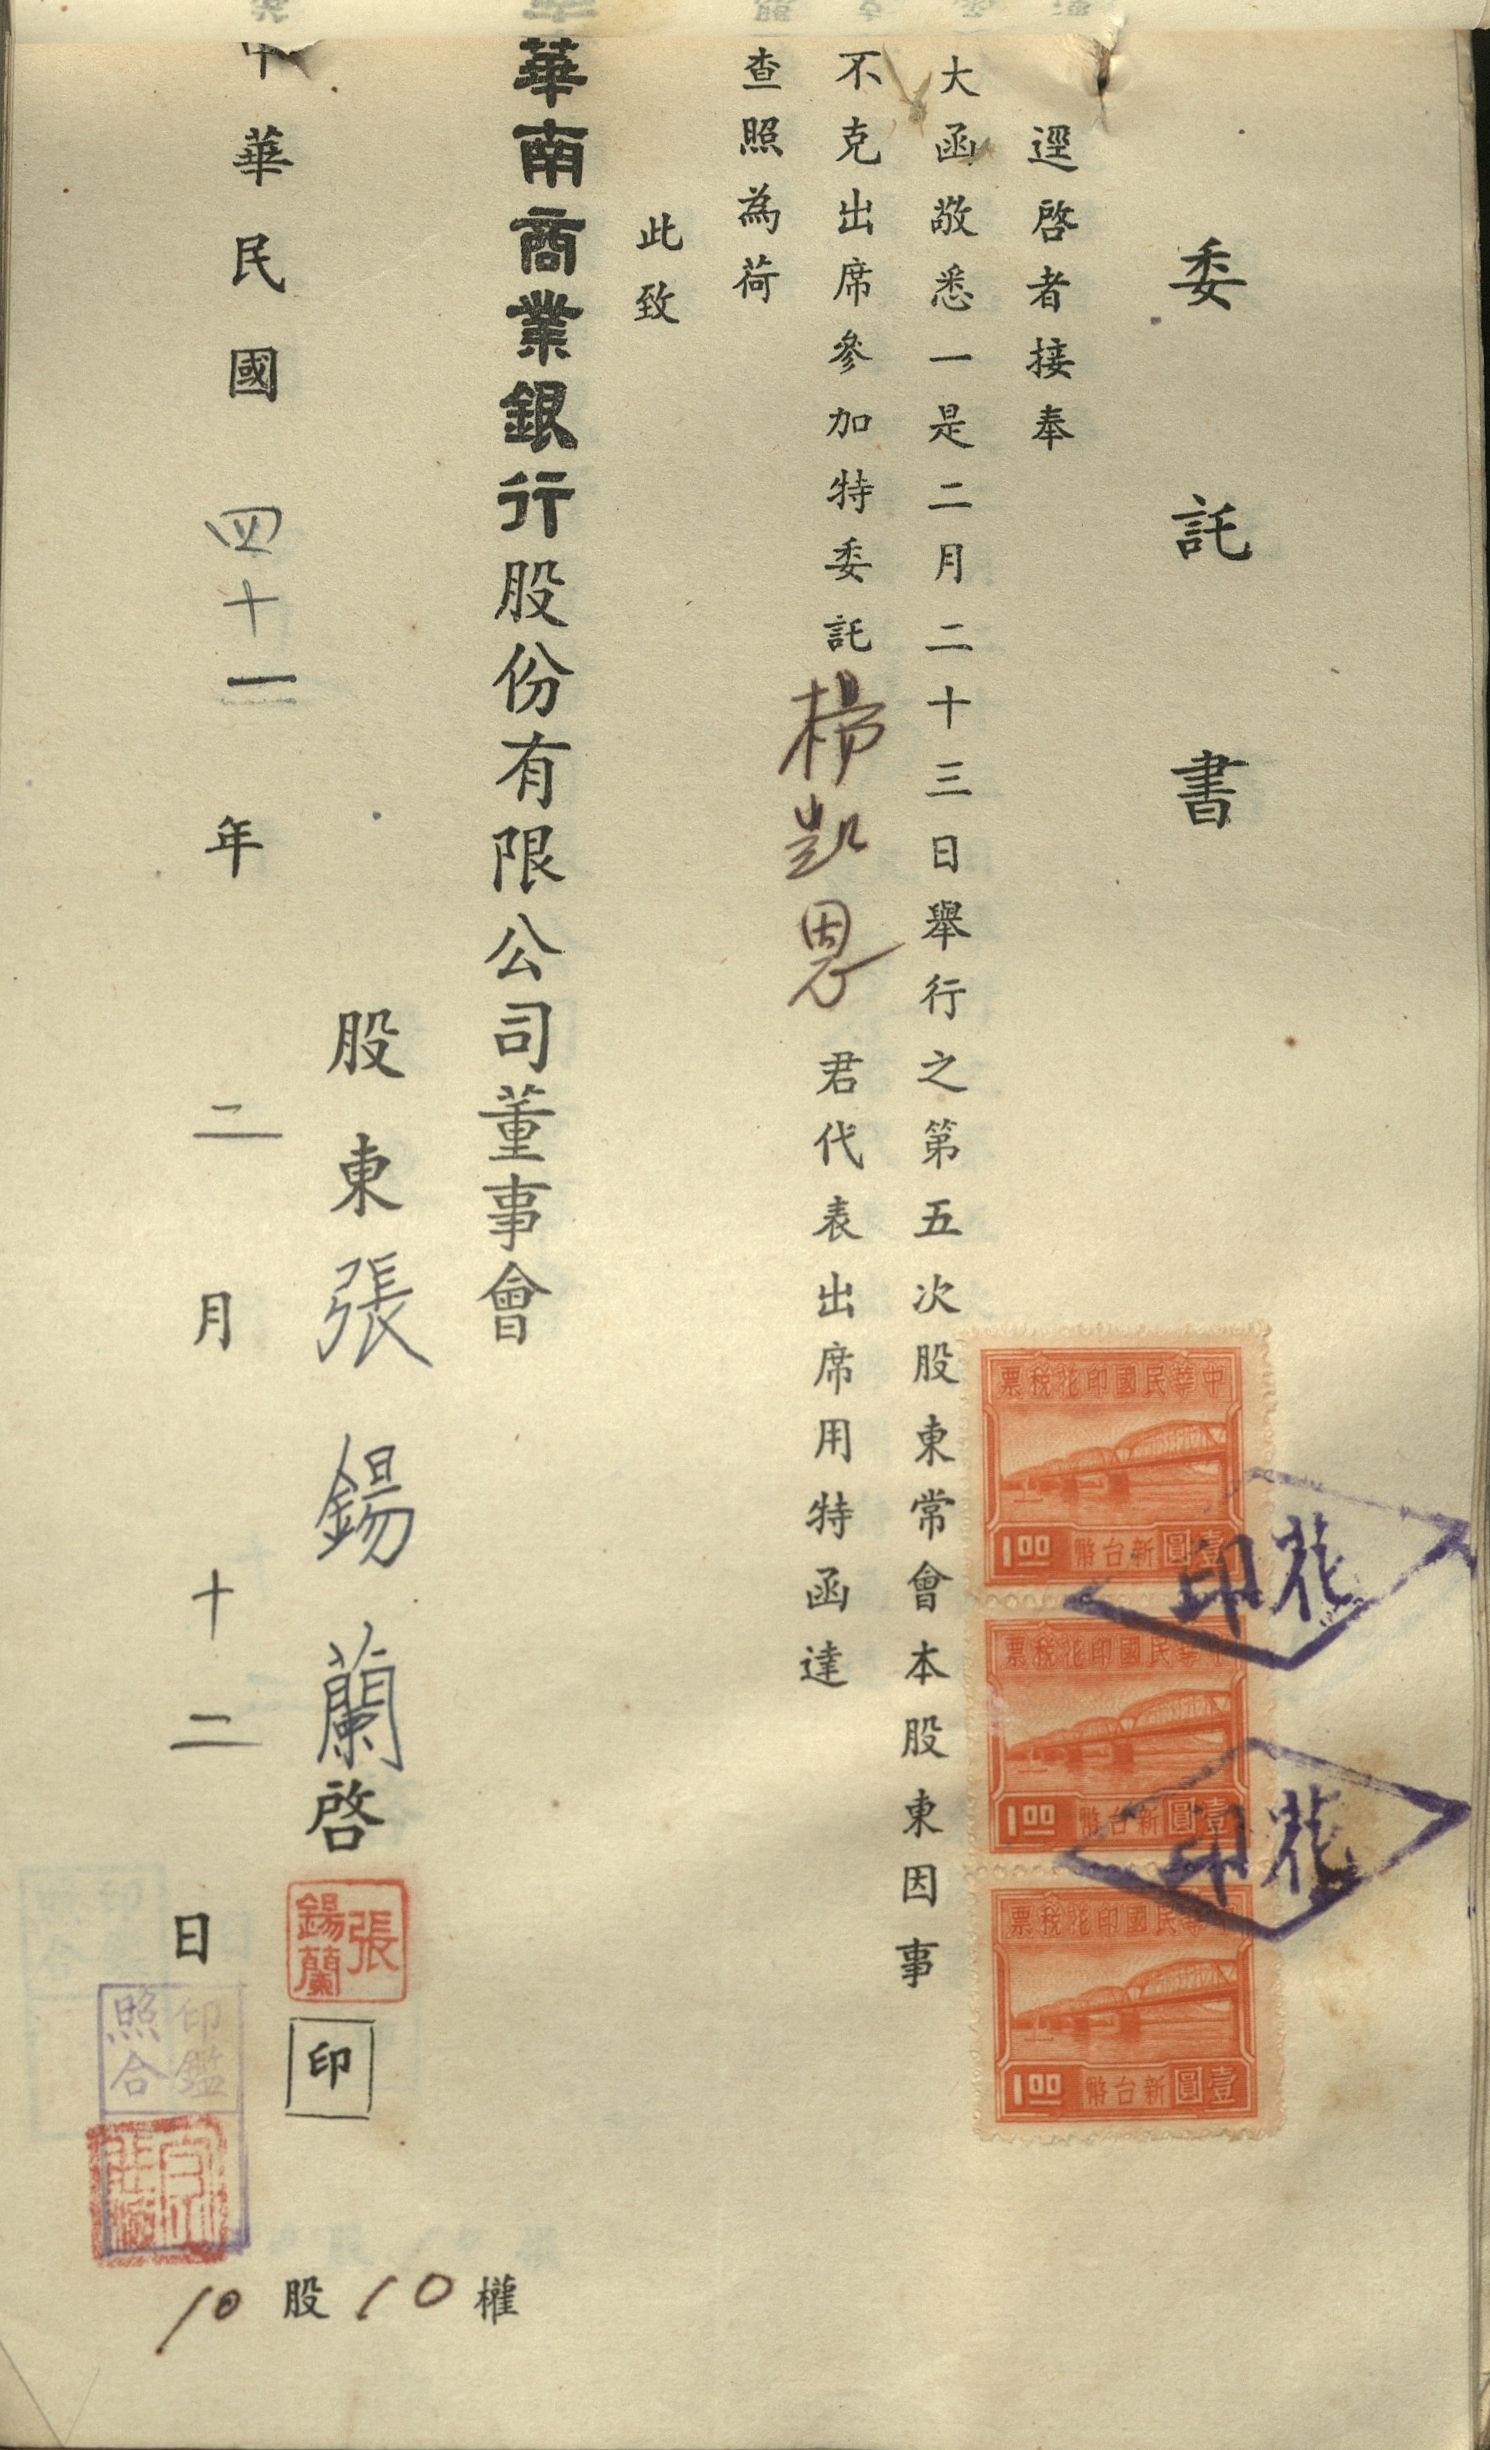 委託書
逕啓者接奉
大函敬悉一是二月二十三日舉行之第五次股東常會本股東因事
不克出席參加特委託楊凱恩君代表出席用特函達
查照為荷
此致
華南商業銀行股份有限公司董事會
股東張錫蘭啓
張錫蘭
印
中華民國四十一年二月十二日
印鑑
照合
10股10權
中華民國印花稅票
1.00 新台幣壹圓
中華民國印花稅票
1.00 新台幣壹圓
中華民國印花稅票
1.00 新台幣壹圓
花印
花印